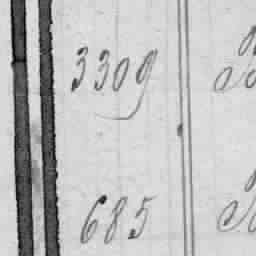 3309
685